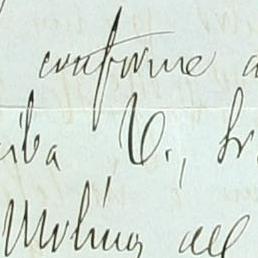 conforme a
iba V., Sr.
Molina all